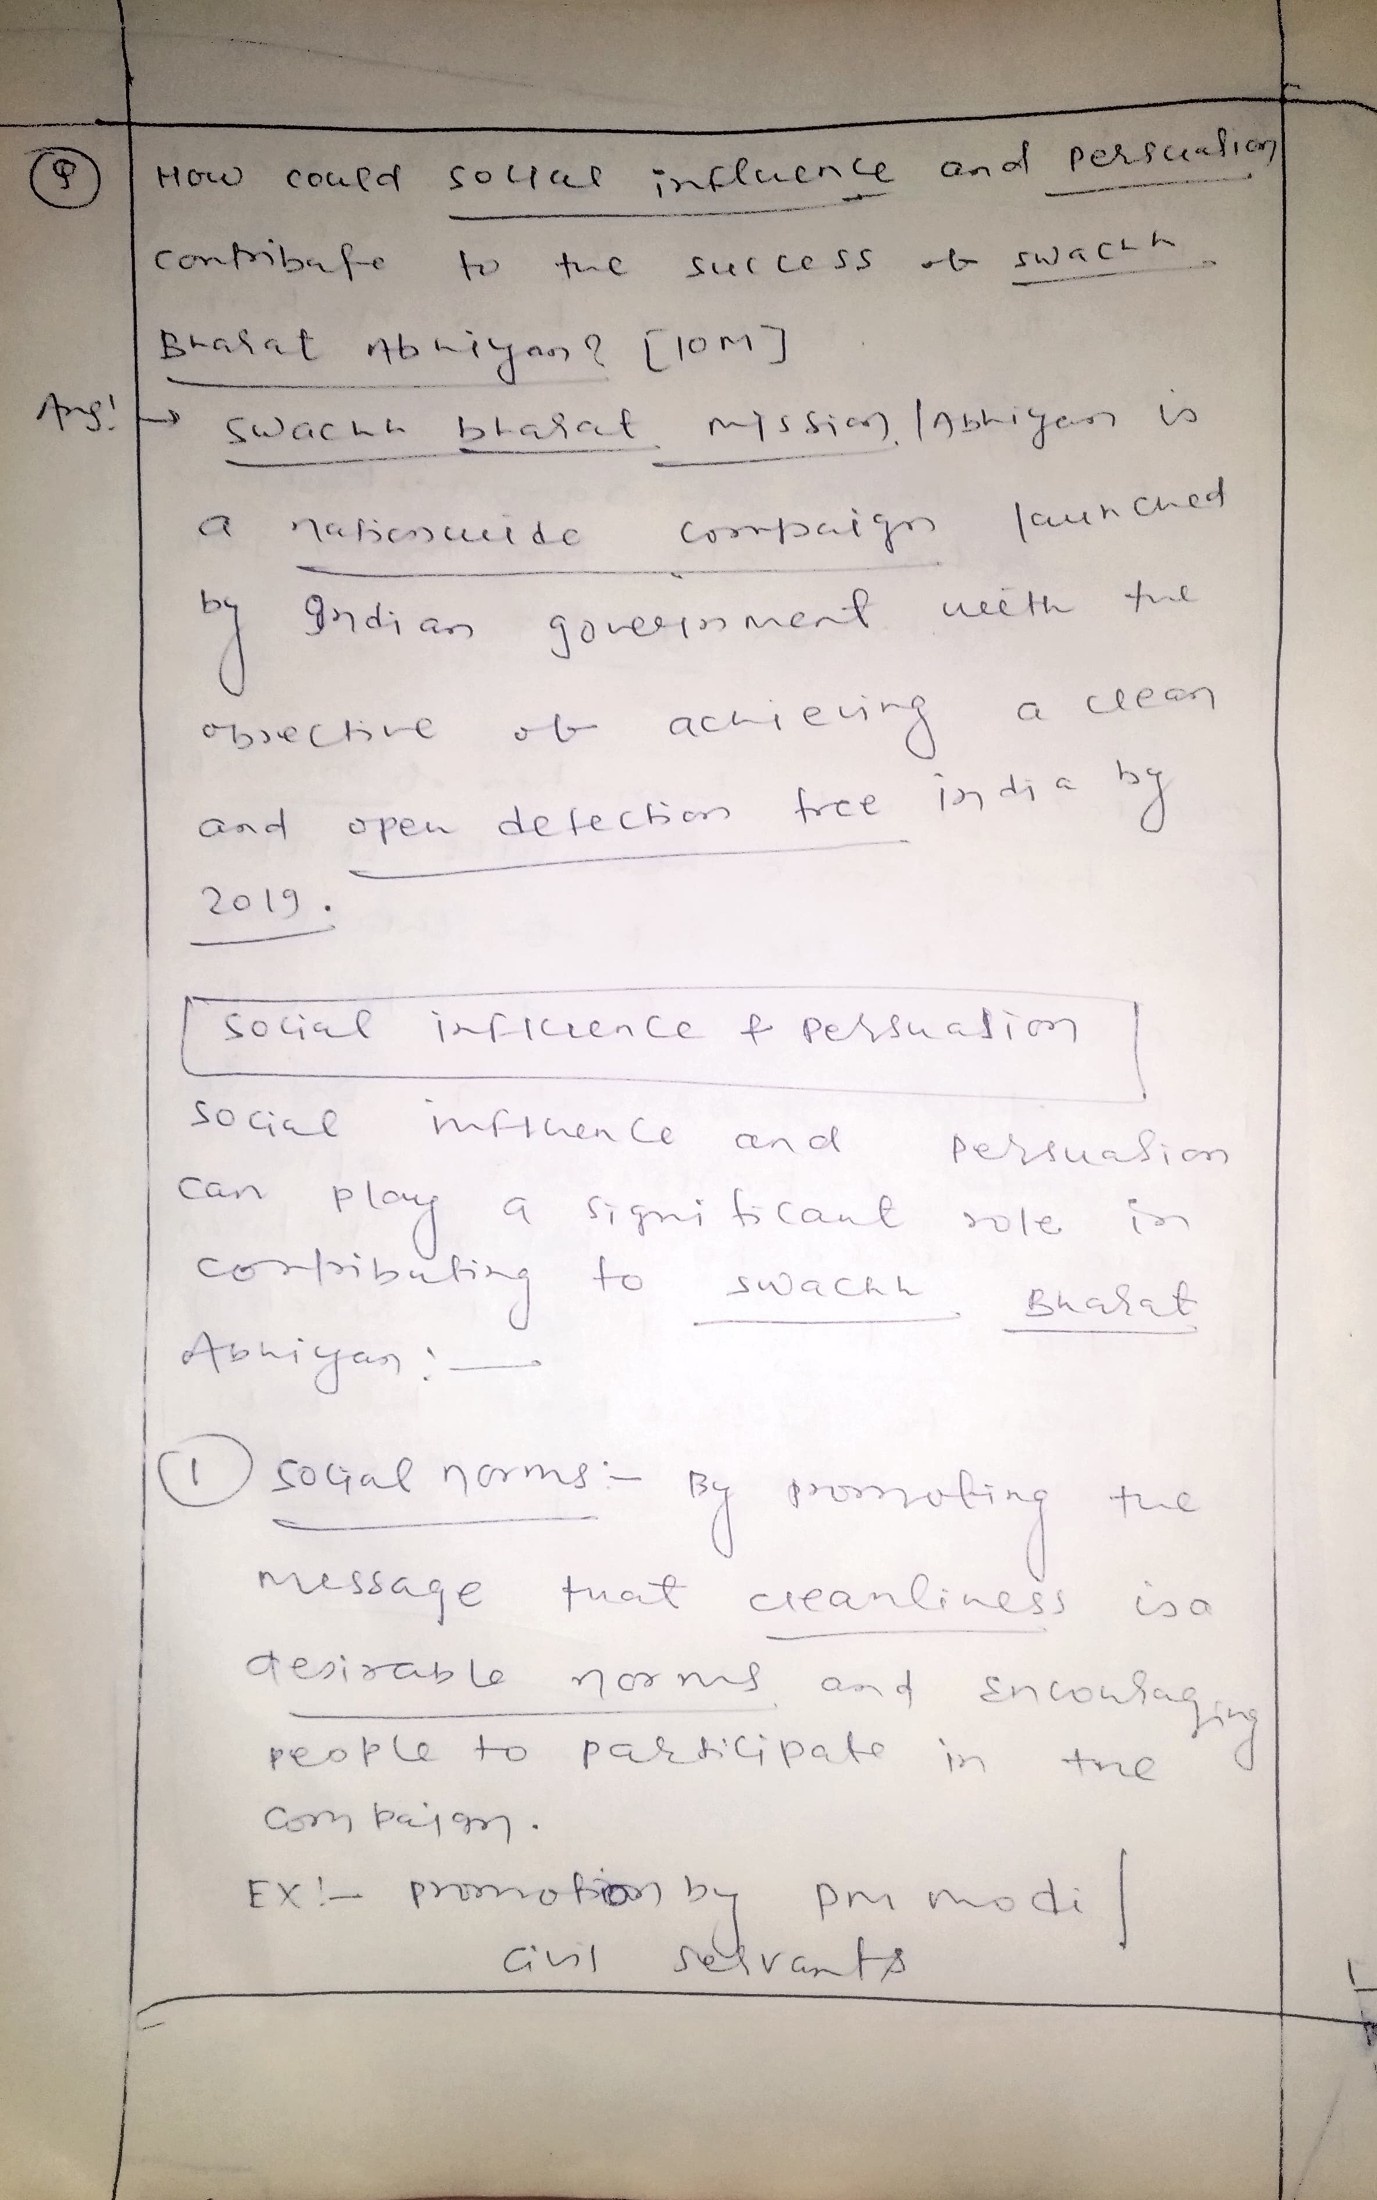 Q
How could social influence and persuation
contribute to the success of swachh
Bharat Abhiyan? [10M]
Ans!→ swachh bharat mission/Abhiyan is
a nationwide compaign launched
by Indian government with the
objective of achieving a clean
and open defection free india by
2019.
social influence & persuasion
social influence and persuasion
can play a significant role in
contributing to swachh Bharat
Abhiyan:—
① social norms:- By promoting the
message that cleanliness is a
desirable norms and encouraging
people to participate in the
compaign.
EX!- promotion by pm modi/
civil servants